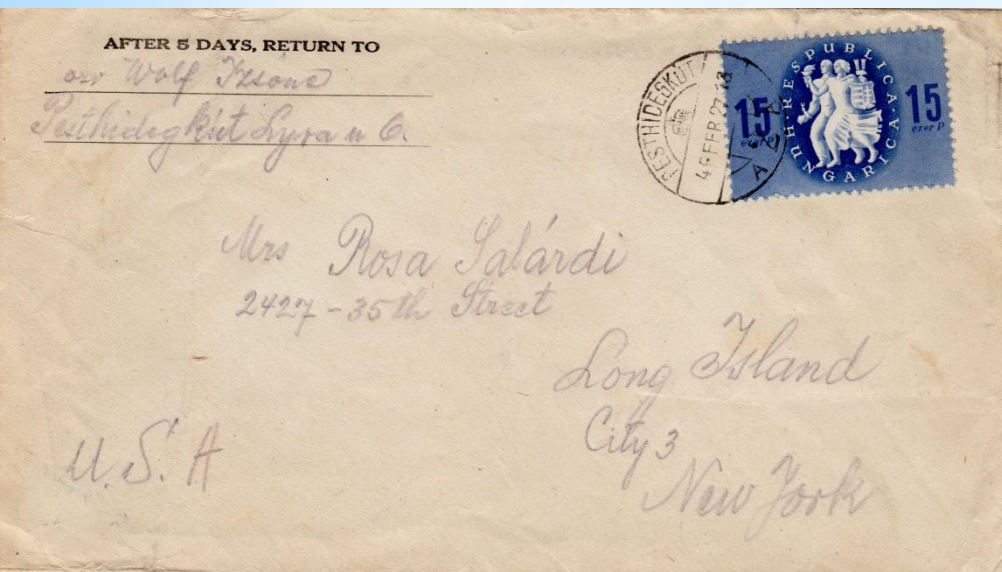 AFTER 5 DAYS, RETURN TO
Wolf
Pesthidegkút Lyra u 6.
PESTHIDEGKÚT
46 FEB 27. 18
15
ezer P
RESPUBLICA
HUNGARICA
15
ezer P
Mrs Rosa Salárdi
2427-35th Street
Long Island
City 3
New York
U.S.A